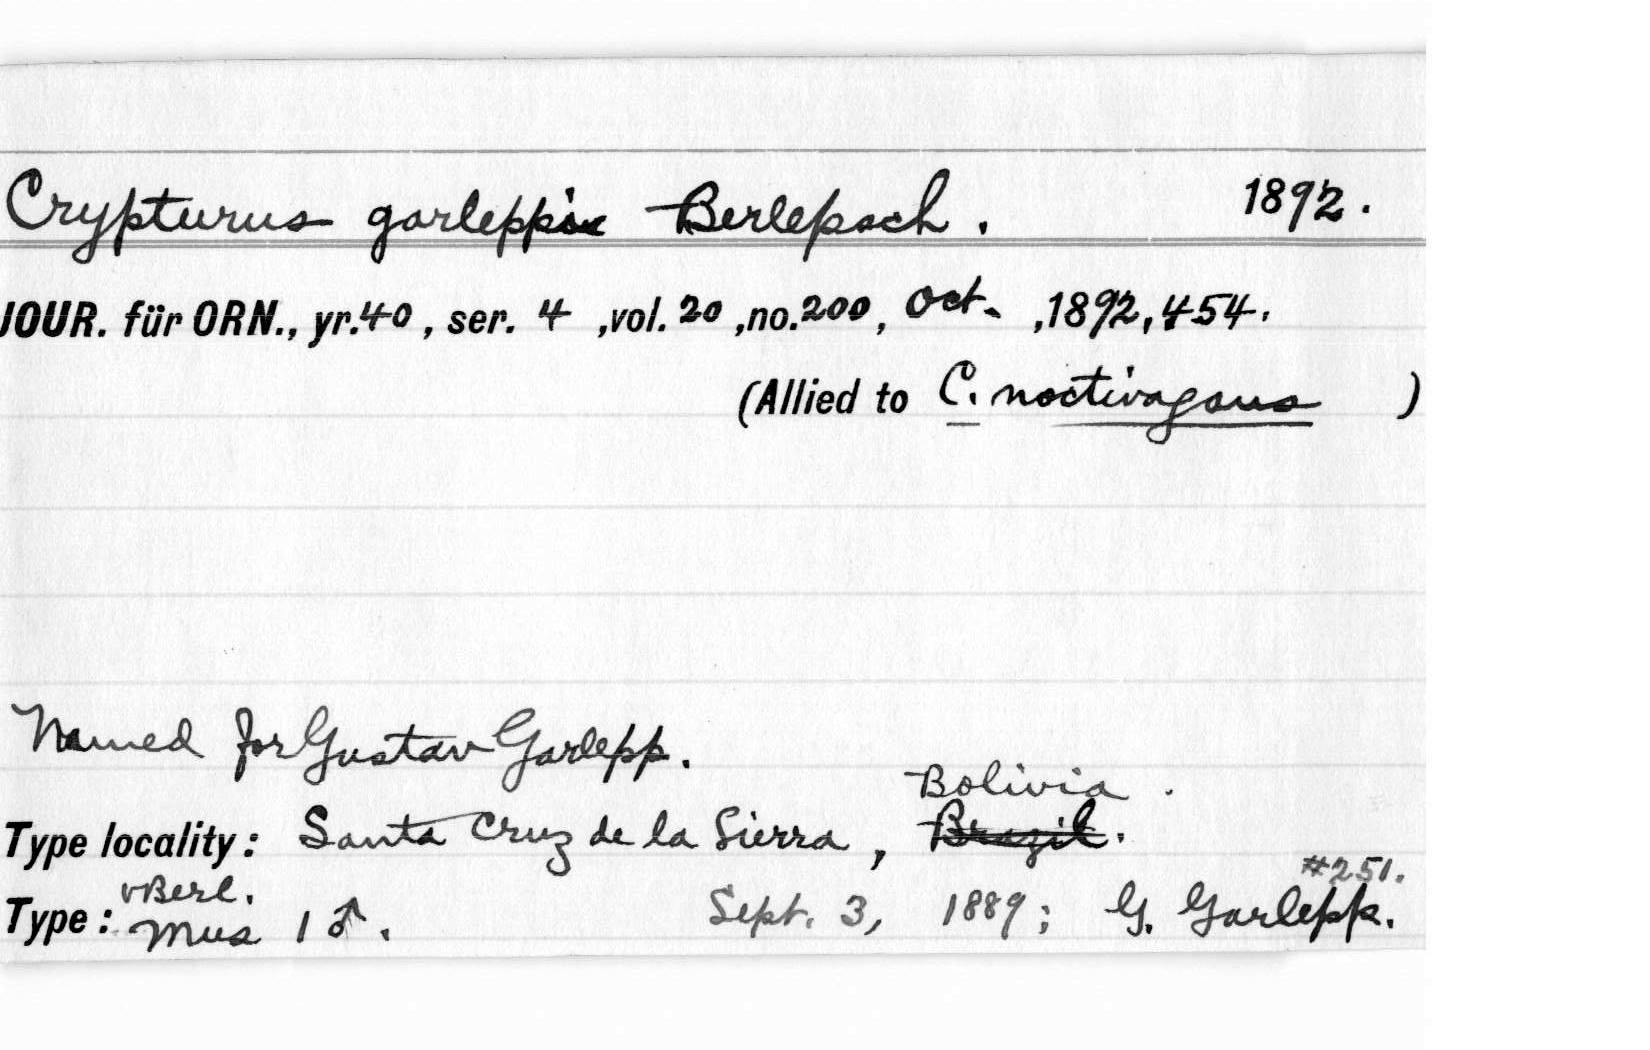 Crypturus garleppi Berlepsch. 1892.
JOUR. für ORN., yr.40, ser. 4, vol. 20, no.200, Oct., 1892, 454.
(Allied to C. noctivagans )
Named for Gustav Garlepp.
Bolivia.
Type locality: Santa Cruz de la Sierra, Brazil.
vBerl. #251.
Type: Mus 1 ♂. Sept. 3, 1889; G. Garlepp.